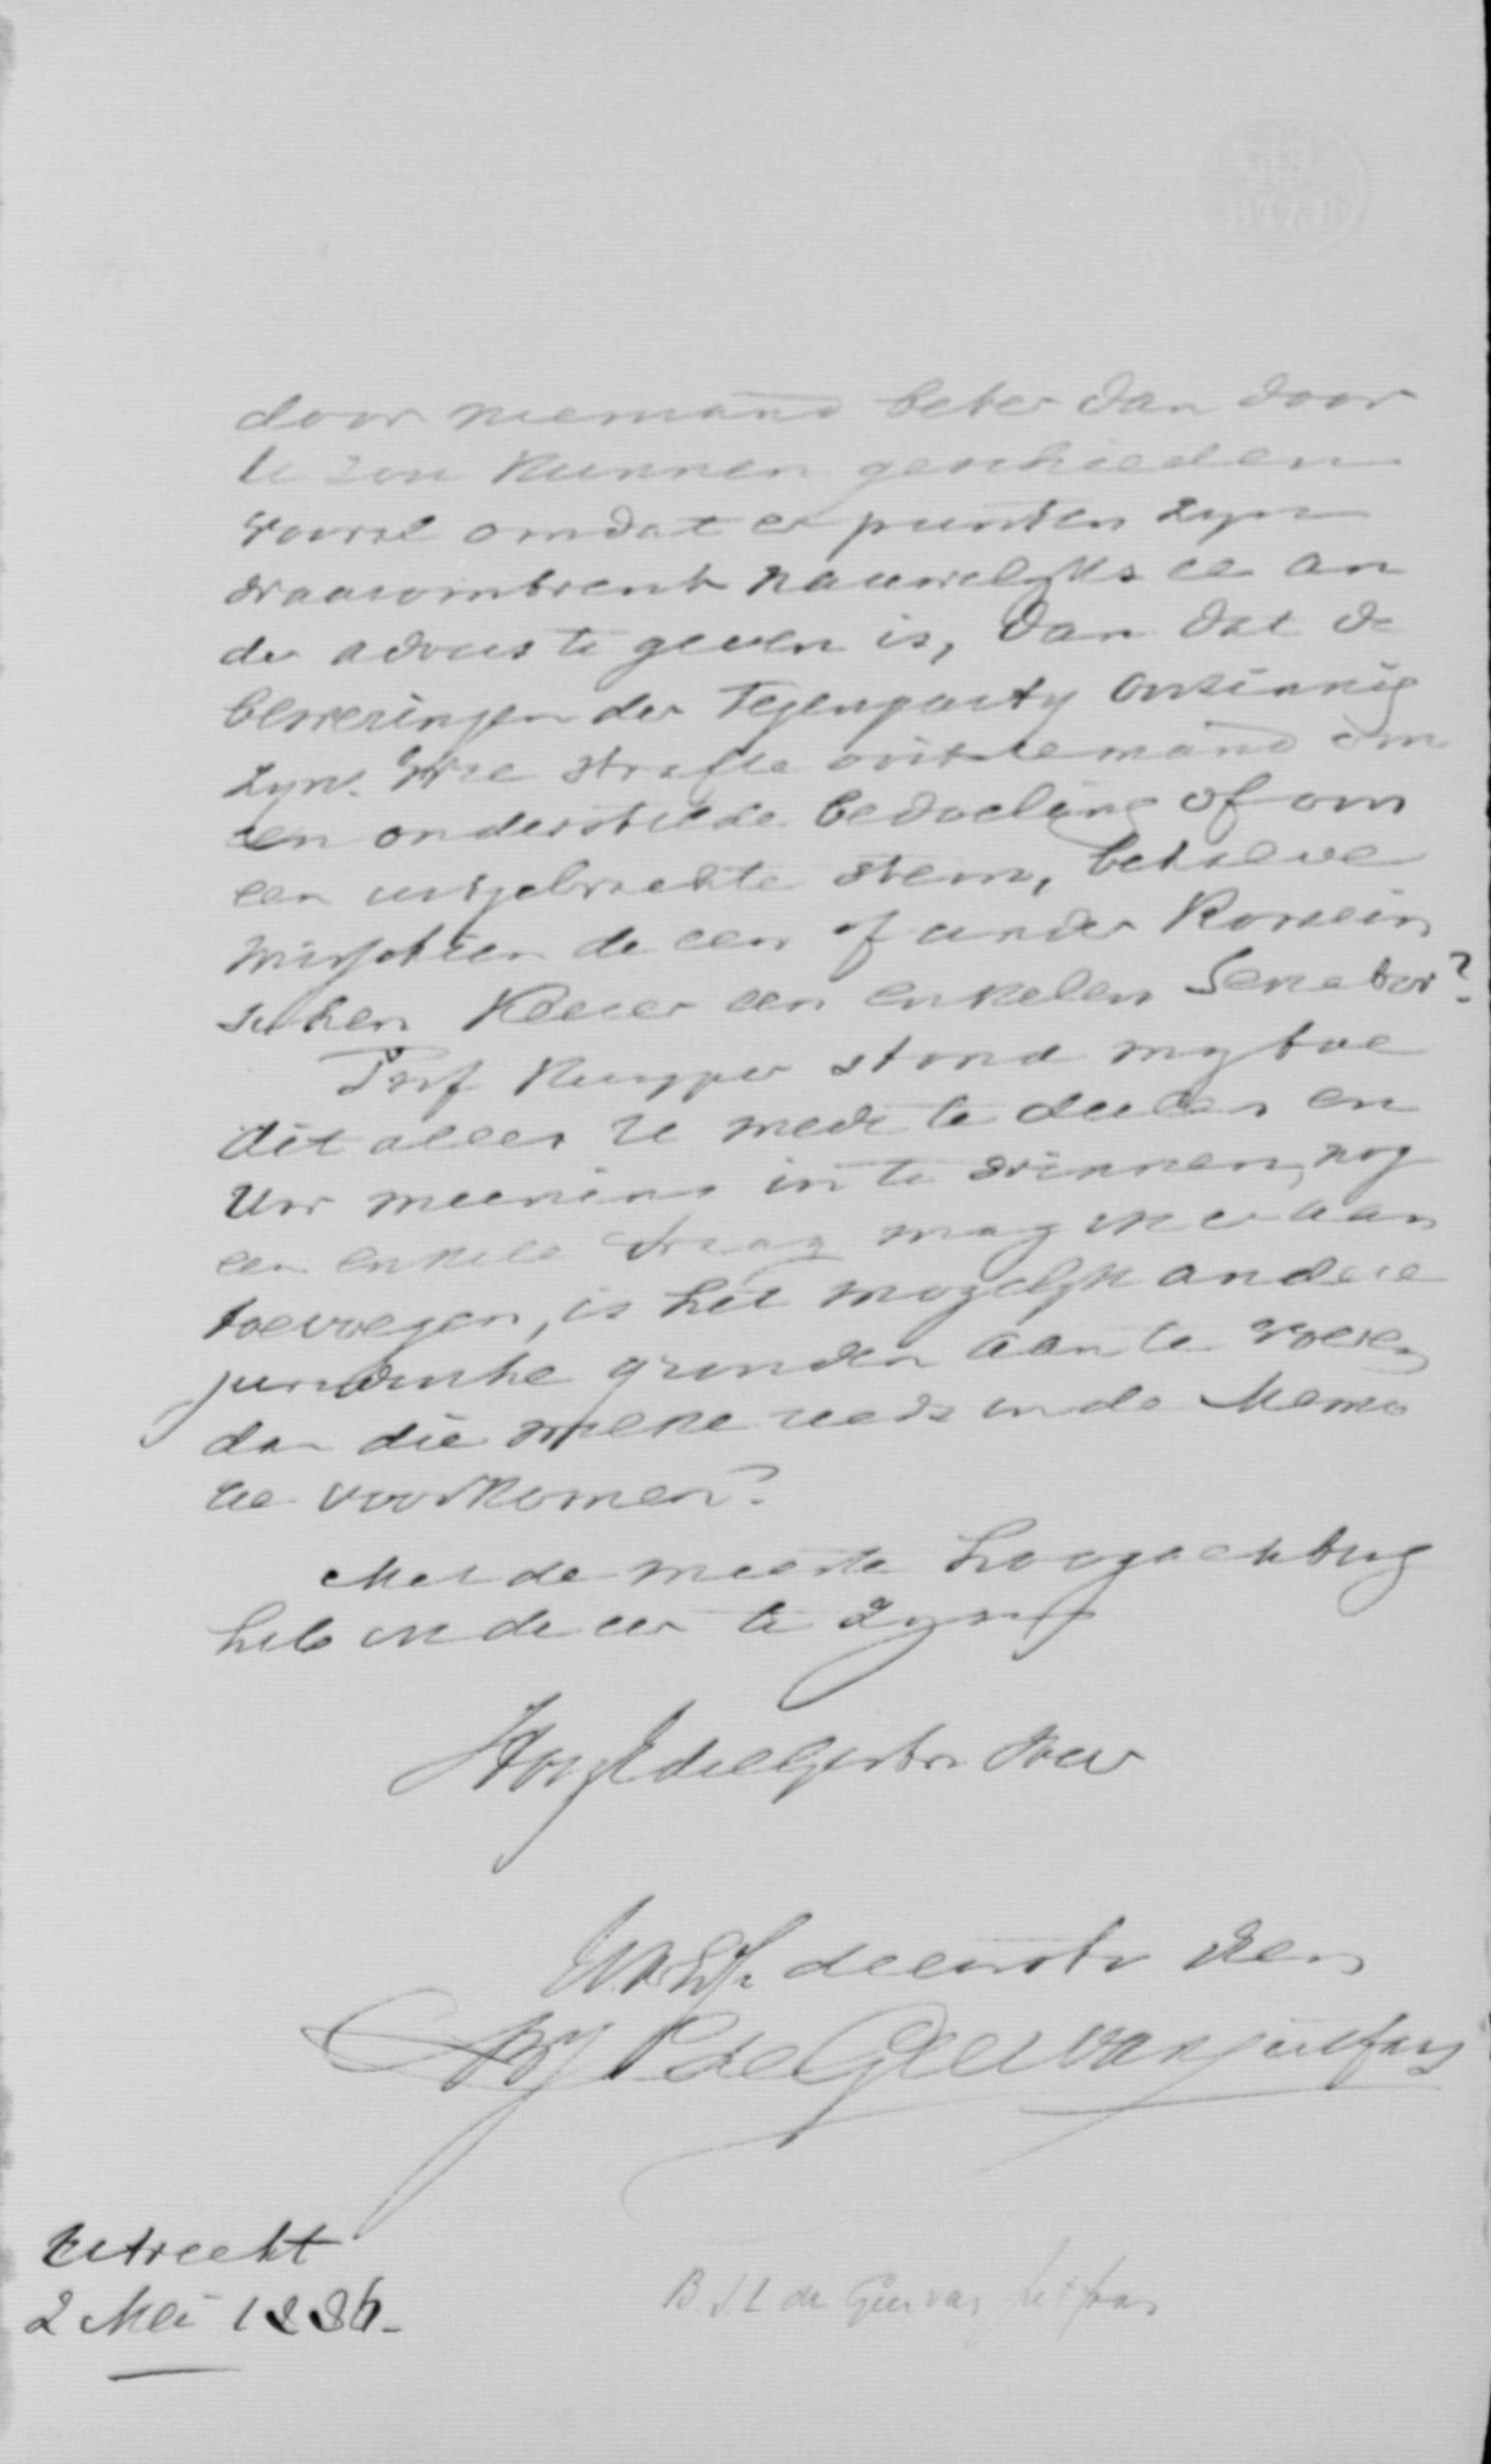 door niemand beter dan door
U zou kunnen geschieden
vooral omdat er punten zyn
waaromtrent nauwelyks ee an
der advies te geven is, dan dat de
beweringen der Tegenparty onzinnig
zyn. Wie strafte ooit iemand om
een onderstelde bedoeling of om
een uitgebrachte stem, behalve
misschien de een of ander Romein
schen Keizer een enkelen Senator?
Prof Kuyper stond my toe
dit alles U mede te deelen en
Uw meening in te winnen, nog
een enkele vraag mag ik er aan
toevoegen, is het mogelyk andere
juridische gronden aan te voeren
dan die welke reeds in de Memo
rie voorkomen?
Met de meeste hoogachting
heb ik de eer te zyn
HoogEdelGestr Heer
UwEd. dienstv dien
BJL de Geer van Jutfaas
Utrecht
2 Mei 1886.
B J L de Geer van Jutfaas